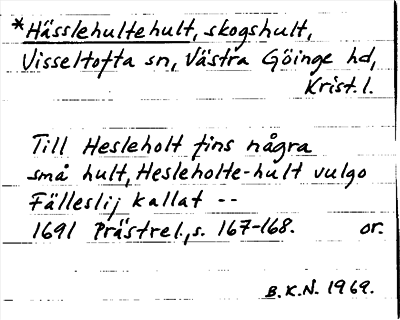 *Hässlehultehult, skogshult,
Visseltofta sn, Västra Göinge hd,
Krist. l.
Till Hesleholt fins några
små hult, Hesleholte-hult vulgo
Fälleslij kallat --
1691 Prästrel., s. 167-168. or.
B.K.N. 1969.